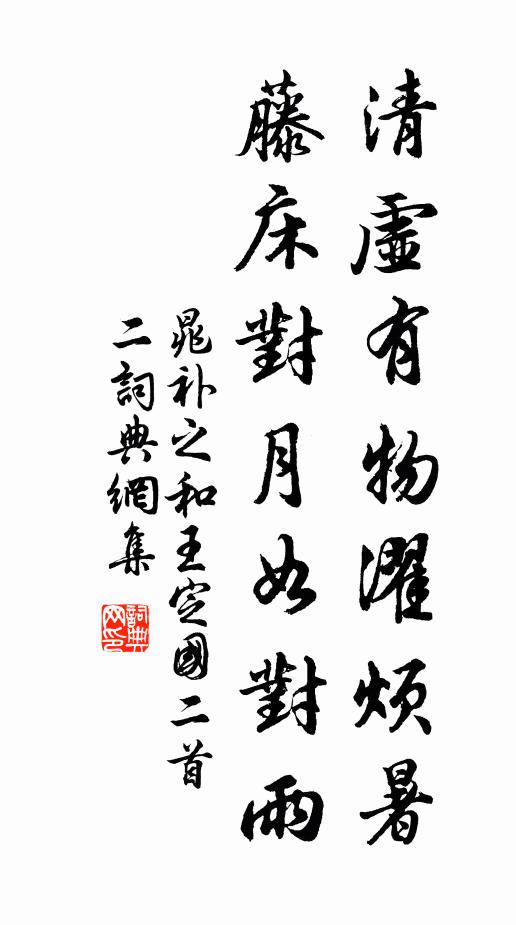 清虛有物濯煩暑
藤床對月如對雨
晁补之和王定國二首
二詞典網集
詞典网印